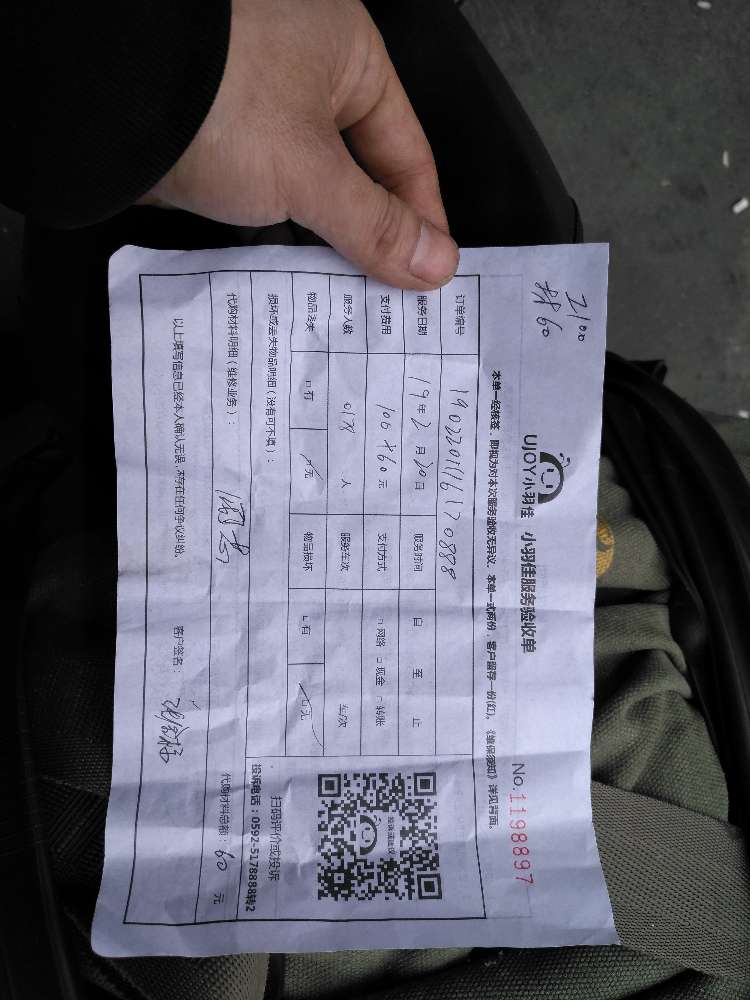 UJOY小羽佳 小羽佳服务验收单
No.1198897
本单一经核签，即视为对本次服务验收无异议，本单一式两份，客户留存一份(红)。《维保须知》详见背面。
订单编号
服务日期 19 年 2 月 20 日 服务时间 自 至 止
支付费用 元 支付方式 □网络 □现金 □转账
服务人数 人 服务车次 车/次
物品丢失 □有 □无 物品损坏 □有 □无
扫码评价或投诉
投诉电话：0592-5178888转2
损坏或丢失物品明细（没有可不填）：
代购材料明细（维修业务）：
代购材料总额：60 元
以上填写信息已经本人确认无误，不存在任何争议纠纷。 客户签名：